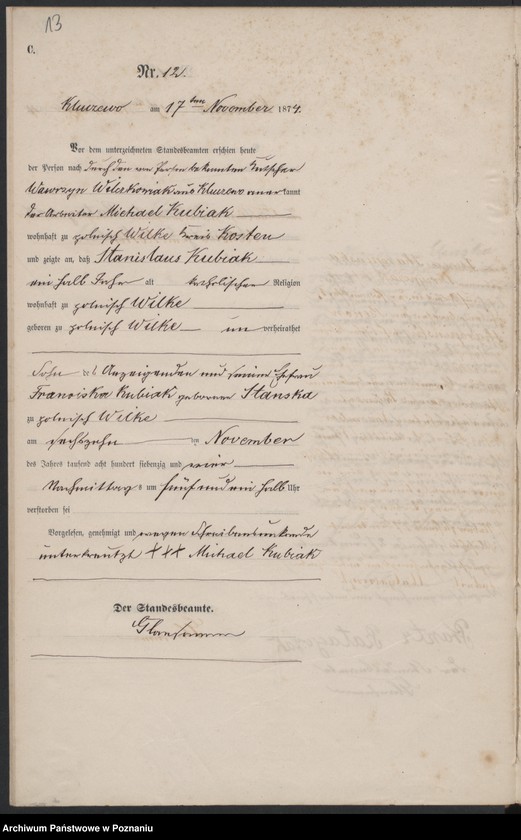 13
C.
Nr. 12.
Kluczewo am 17ten November 1874.
Vor dem unterzeichneten Standesbeamten erschien heute
der Person nach durch den von Person bekannten Kutscher
Wawrzyn aus Kluczewo anerkannt
der Arbeiter Michael Kubiak
wohnhaft zu polnisch Wilke Kreis Kosten
und zeigte an, daß Stanislaus Kubiak
ein halb Jahr alt katholischer Religion
wohnhaft zu polnisch Wilke
geboren zu polnisch Wilke un verheirathet
Sohn des Anzeigenden und seiner Ehefrau
Franciska Kubiak geborene Stanska
zu polnisch Wilke
am sechszehn ten November
des Jahres tausend acht hundert siebenzig und vier
Nachmittags um fünf und ein halb Uhr
verstorben sei
Vorgelesen, genehmigt und wegen Schreibensunkunde
unterkreutzt XXX Michael Kubiak
Der Standesbeamte.
Archiwum Państwowe w Poznaniu